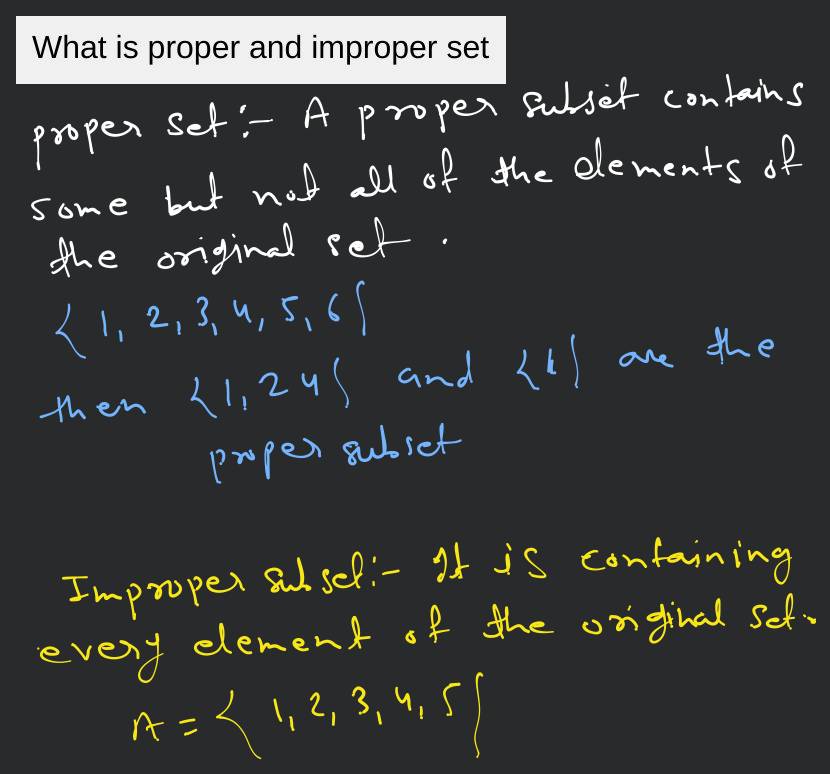 What is proper and improper set
proper set :- A proper subset contains
some but not all of the elements of
the original set .
{1, 2, 3, 4, 5, 6}
then {1, 2 4} and {1} are the
proper subset
Improper subset :- It is containing
every element of the original set.
A = { 1, 2, 3, 4, 5}